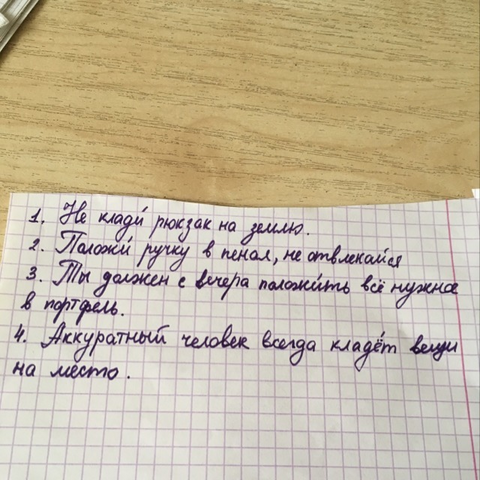 1. Не клади́ рюкзак на землю.
2. Положи́ ручку в пенал, не отвлекайся
3. Ты должен с вечера положи́ть всё нужное
в портфель.
4. Аккуратный человек всегда кладёт вещи
на место.